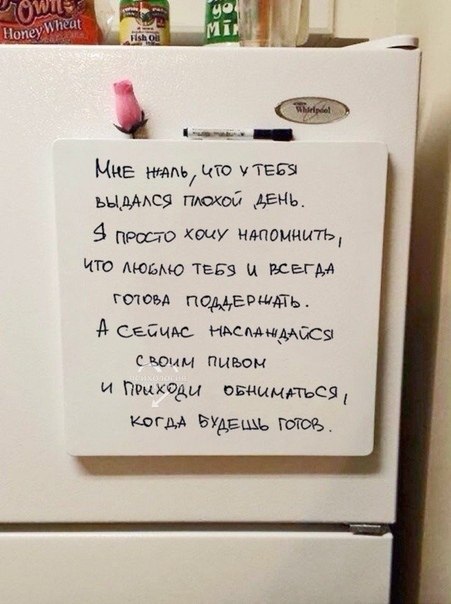 Own's
Honey Wheat
Fish Oil
yo
Mi
Whirlpool
Мне жаль, что у тебя
выдался плохой день.
Я просто хочу напомнить,
что люблю тебя и всегда
готова поддержать.
А сейчас наслаждайся
своим пивом
психология
и приходи обниматься,
когда будешь готов.